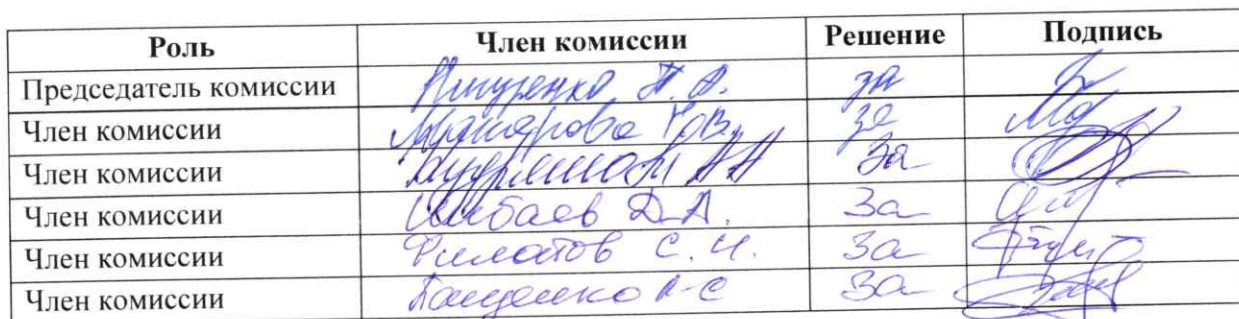 Роль Член комиссии Решение Подпись
Председатель комиссии за
Член комиссии Макарова Ю.В. за
Член комиссии Кудряшов А.А. За
Член комиссии Д.А. За
Член комиссии Филатов С.И. За
Член комиссии За